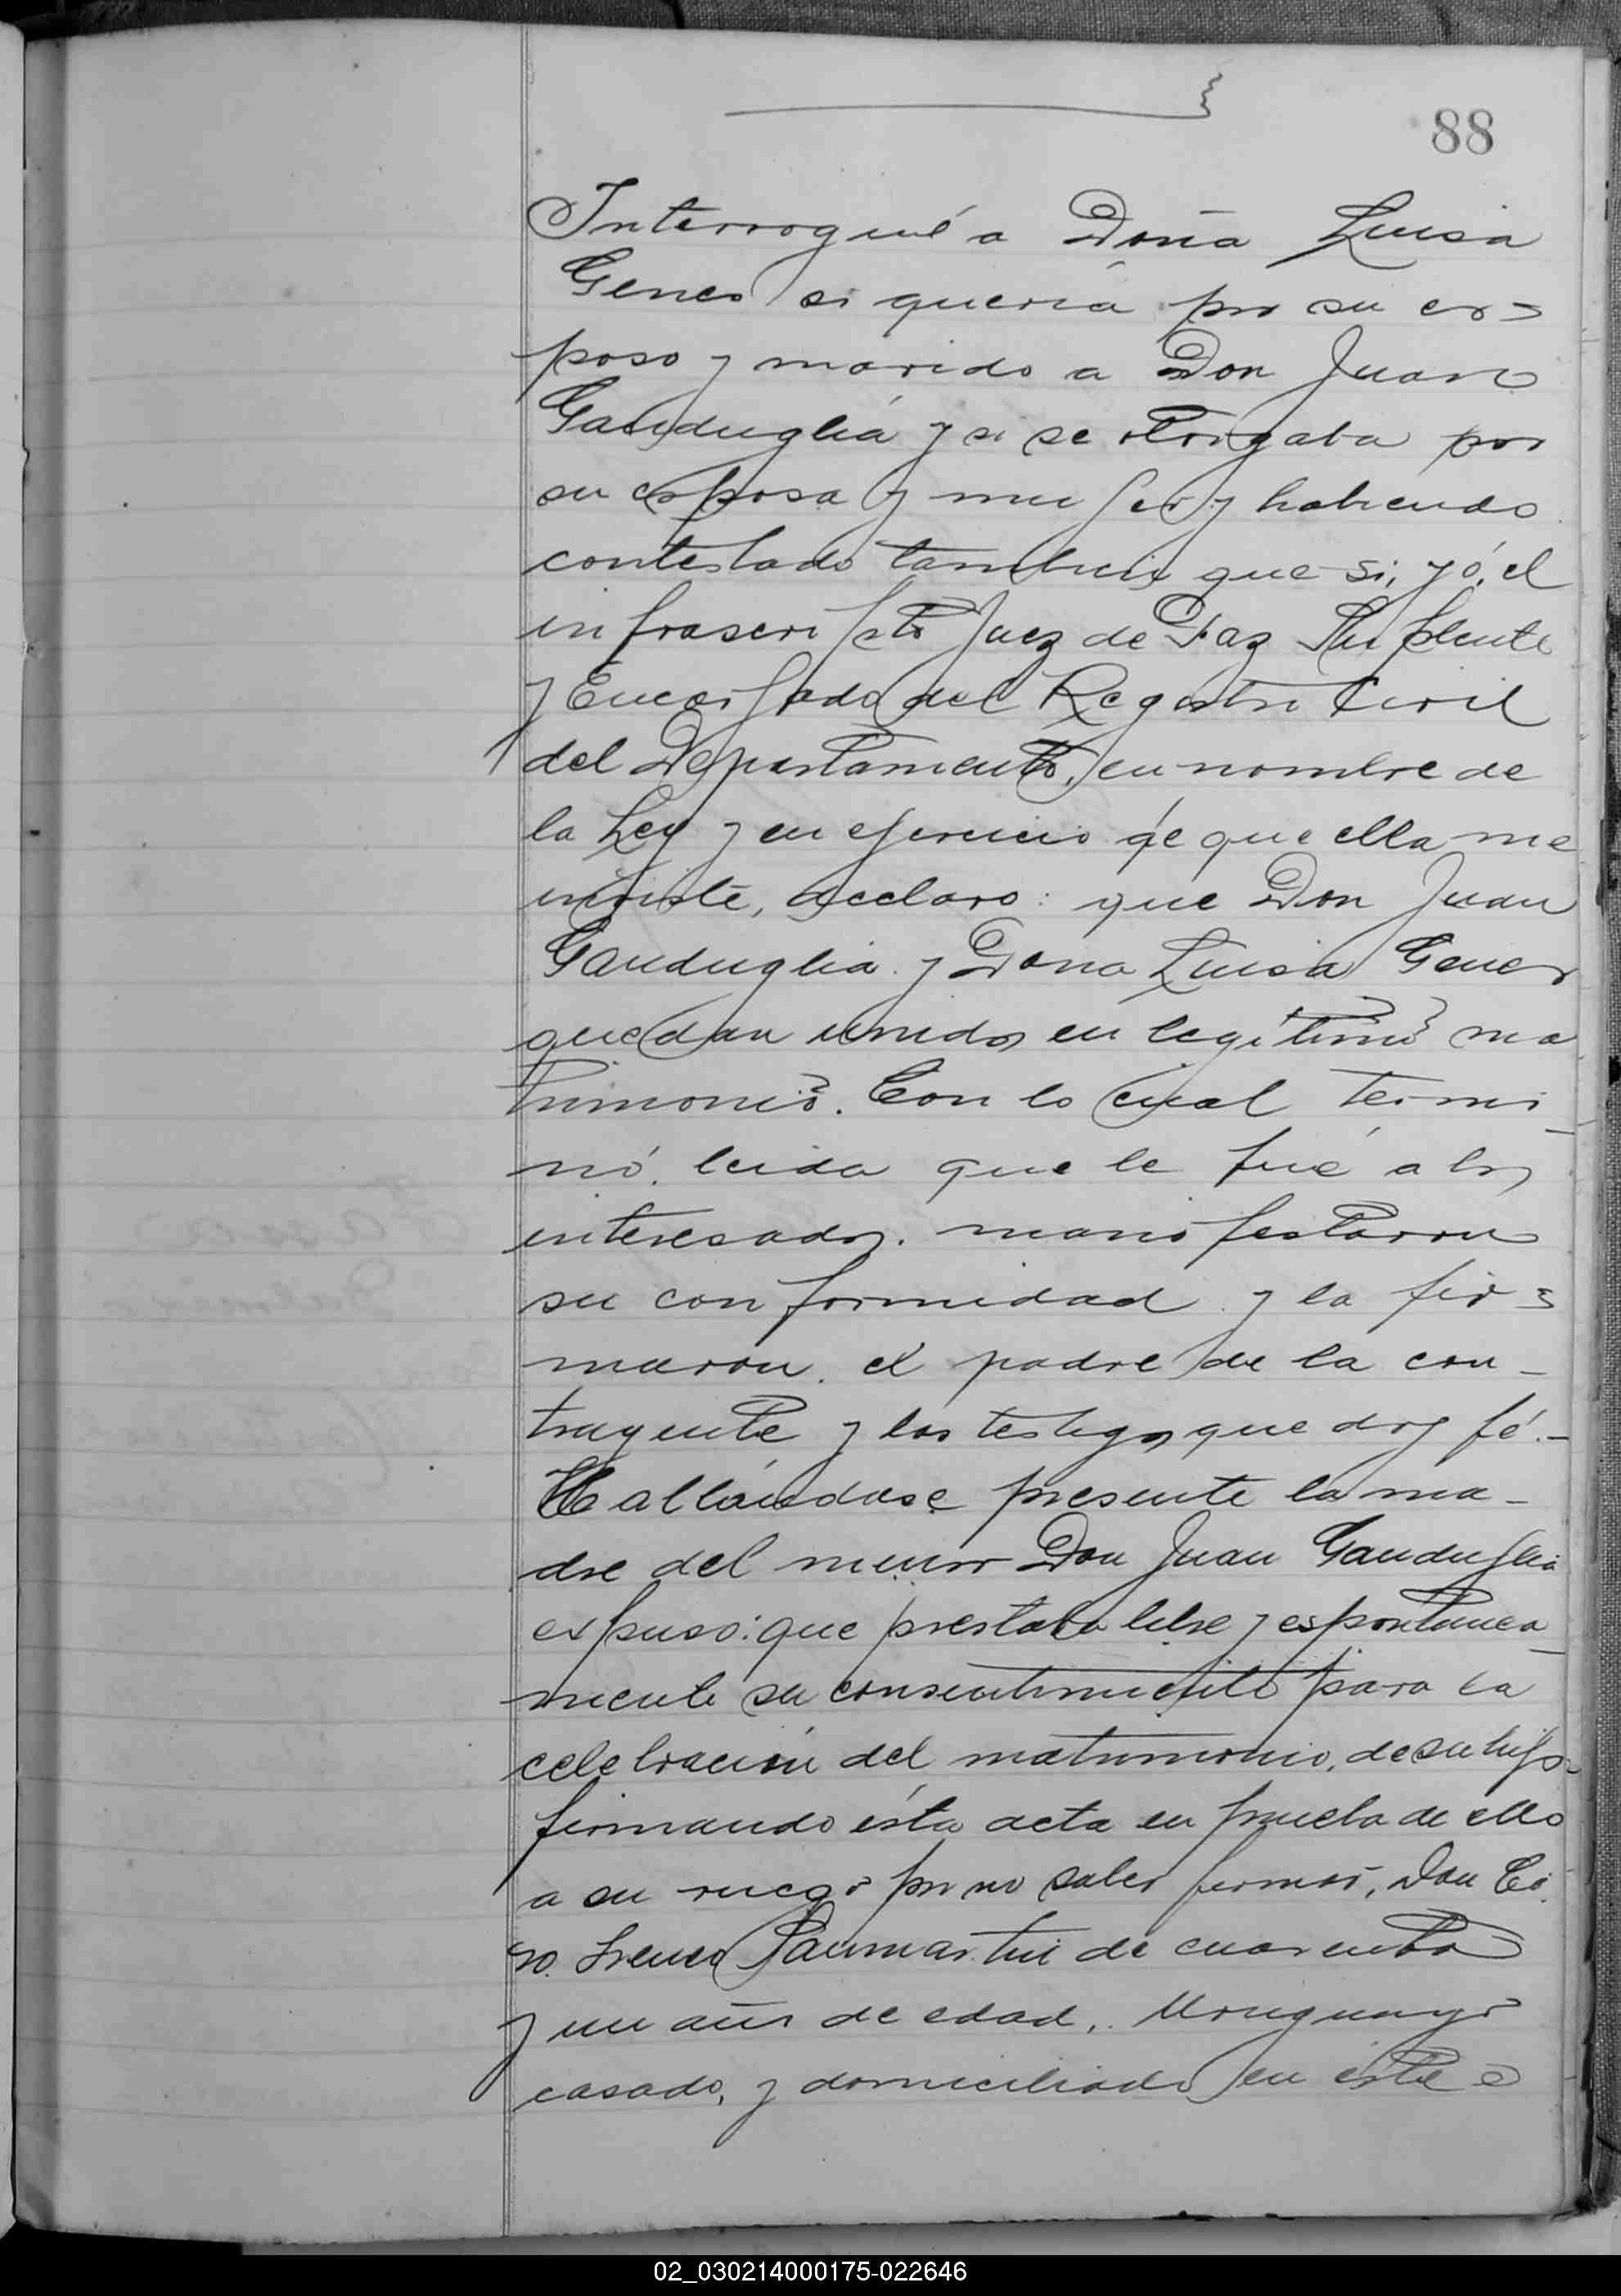 88
Interrogué a Doña Luisa
Genes si queria por su es=
poso y marido a Don Juan
Ganduglia y si se otorgaba por
su esposa y mujer y habiendo
contestado tambien que si, yó, el
infrascripto Juez de Paz Suplente
y Encargado del Registro Civil
del Departamento, en nombre de
la Ley y en ejercicio de que ella me
inviste, declaro: que Don Juan
Ganduglia y Dona Luisa Genes
quedan unidos en legítimo ma
trimonio. Con lo cual termi
nó. leida que le fué a los
interesados. manifestaron
su conformidad y la fir=
maron. el padre de la con-
trayente y los testigos que doy fé.-
Hallándose presente la ma-
dre del menor Don Juan Ganduglia
expuso: que prestaba libre y espontanea
mente su consentimiento para la
celebración del matrimonio, de su hijo-
firmando ésta acta en prueba de ello
a su ruego por no saber firmar, Don Ci
ro. Ireneo Sanmartin de cuarenta
y un años de edad, Uruguayo
casado, y domiciliado en éste
02_030214000175-022646